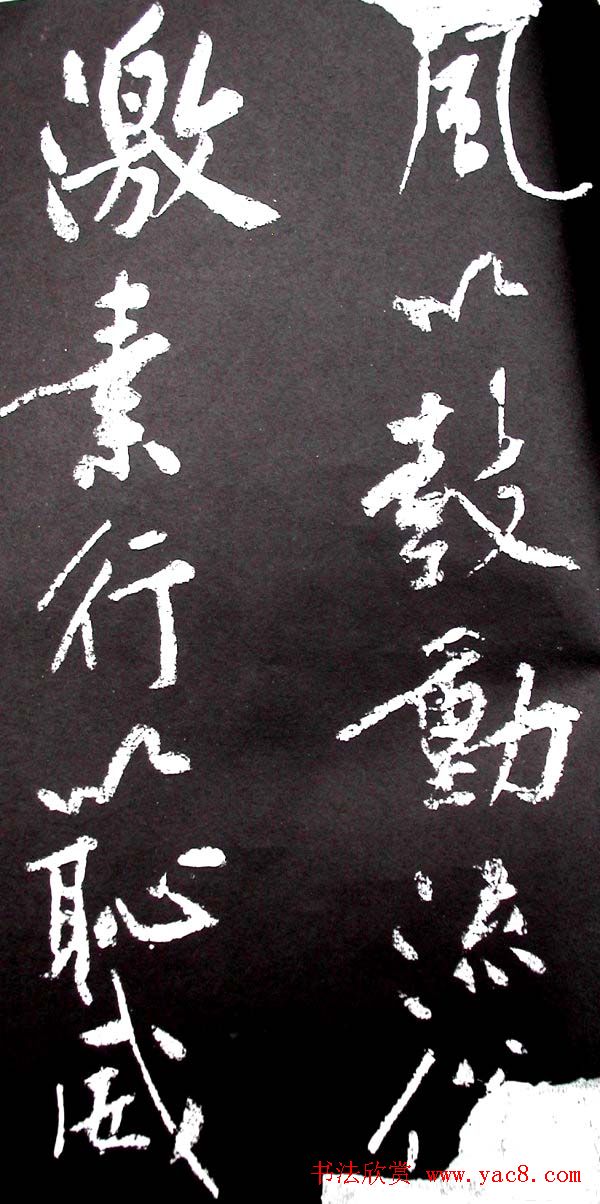 風以鼓動流
激素行以恥威
书法欣赏 www.yac8.com